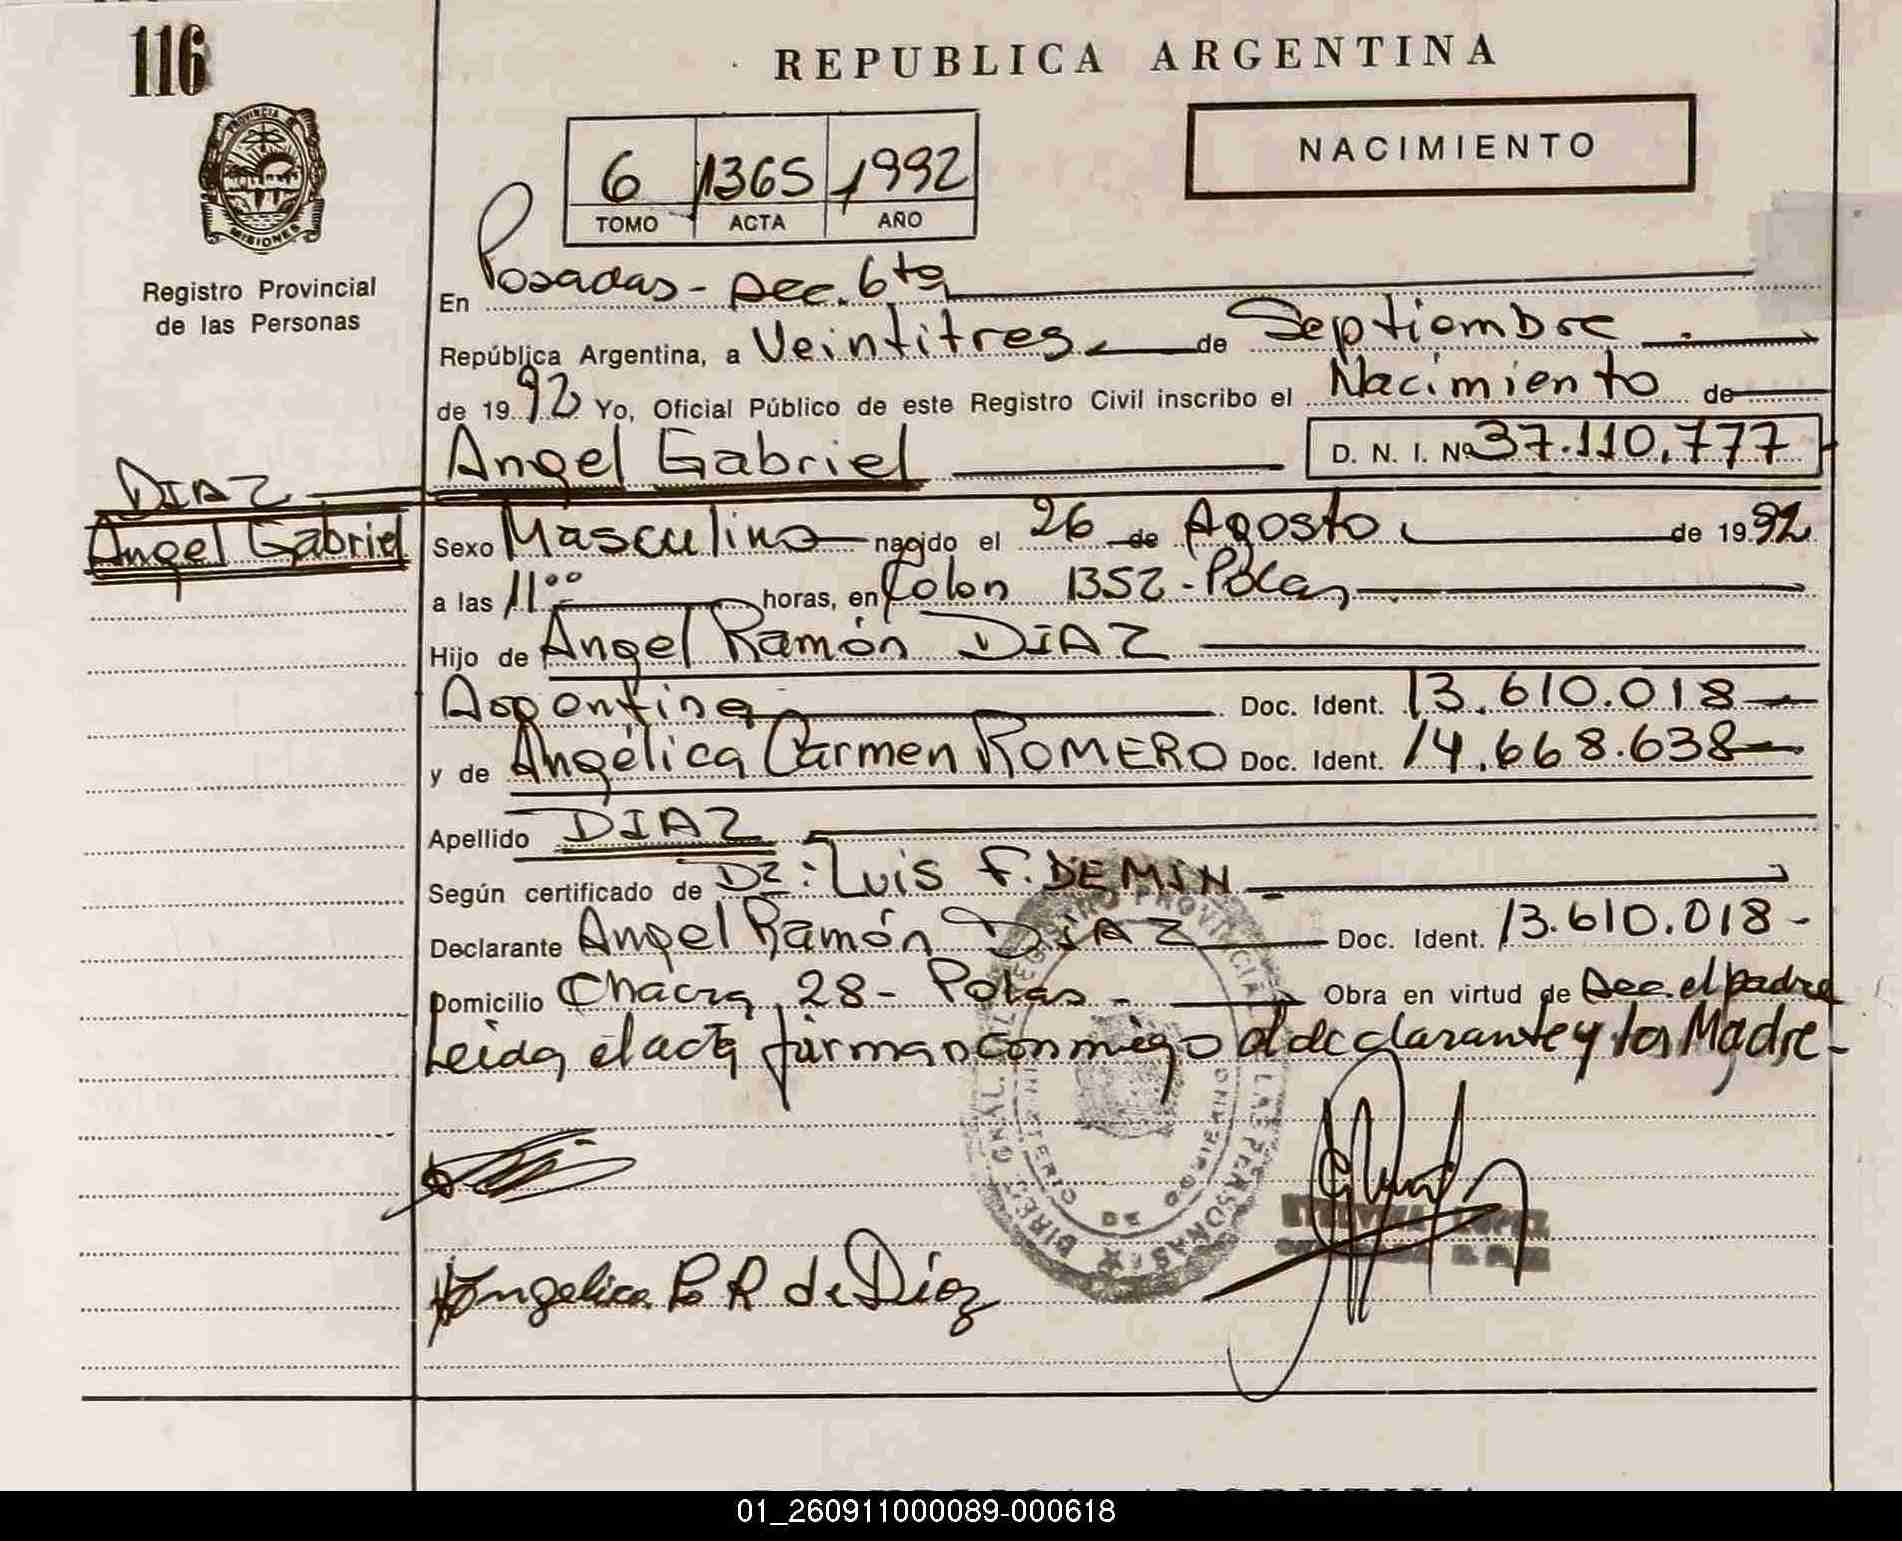 116
REPUBLICA ARGENTINA
NACIMIENTO
6 1365 1992
TOMO ACTA AÑO
PROVINCIA DE
MISIONES
Registro Provincial
de las Personas
En Posadas - Sec. 6ta
República Argentina, a Veintitres de Septiembre
de 1992 Yo, Oficial Público de este Registro Civil inscribo el Nacimiento de
Angel Gabriel D. N. I. Nº 37.110.777
DIAZ
Angel Gabriel
Sexo Masculino nacido el 26 de Agosto de 1992
a las 11°° horas, en Colon 1352 - Pdas
Hijo de Angel Ramón DIAZ
Argentina Doc. Ident. 13.610.018
y de Angélica Carmen ROMERO Doc. Ident. 14.668.638
Apellido DIAZ
Según certificado de Dr: Luis F. DEMIN
Declarante Angel Ramón DIAZ Doc. Ident. 13.610.018 -
Domicilio Chacra 28 - Pdas - Obra en virtud de Sec. el padre
Leida el acta firman conmigo el declarante y la Madre -
DIREC. GRAL. REGISTRO PROVINCIAL DE LAS PERSONAS
MINISTERIO DE GOBIERNO
Angelica C R de Díaz
LOPEZ
01_260911000089-000618